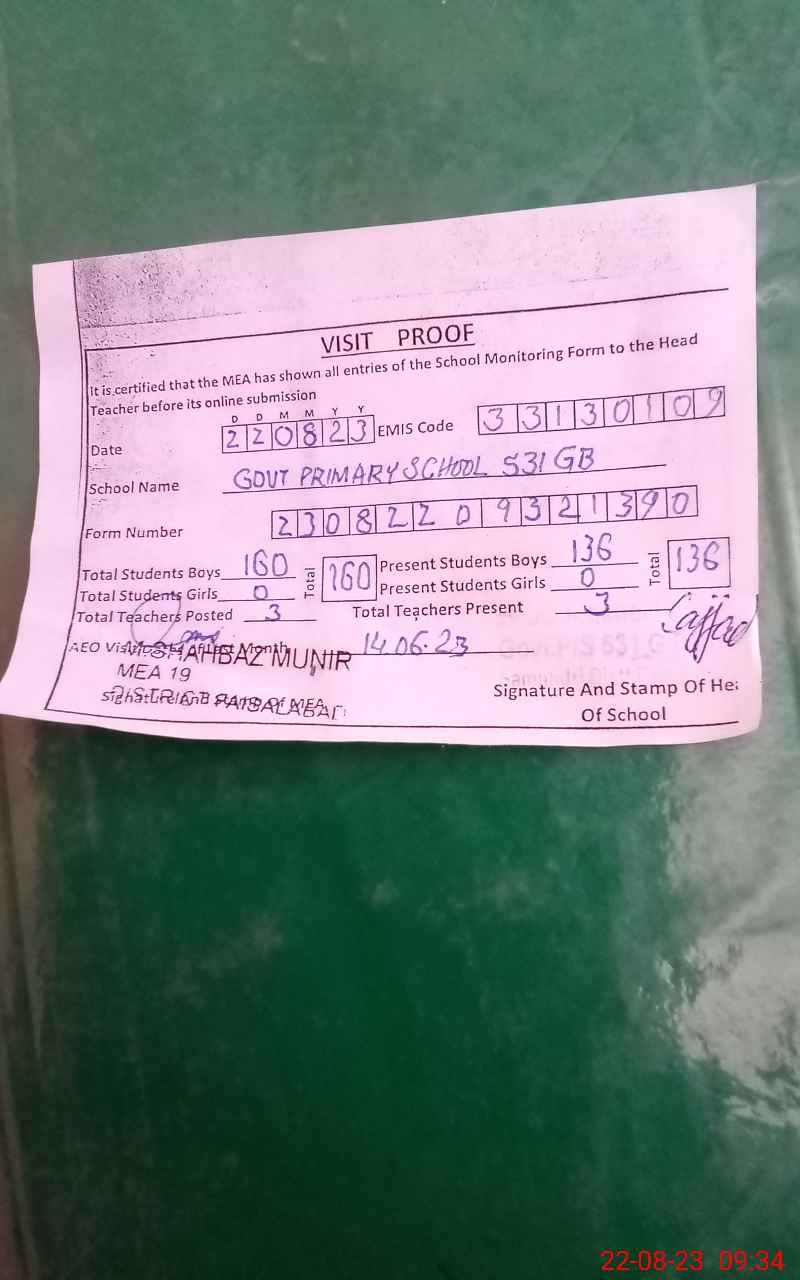 VISIT PROOF
It is certified that the MEA has shown all entries of the School Monitoring Form to the Head
Teacher before its online submission
D D M M Y Y
Date 220823 EMIS Code 33130109
School Name GOVT PRIMARY SCHOOL 531 GB
Form Number 2308220 9321390
Total Students Boys 160 Total 160 Present Students Boys 136 Total 136
Total Students Girls 0 Present Students Girls 0
Total Teachers Posted 3 Total Teachers Present 3
Sajjad
AEO Visit Month 14.06.23
SHAHBAZ MUNIR
MEA 19
Signature And Stamp Of MEA
DISTRICT FAISALABAD
Signature And Stamp Of He
Of School
22-08-23 09:34